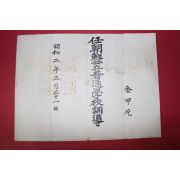 金甲元
任朝鮮公立普通學校訓導
昭和二年三月三十一日